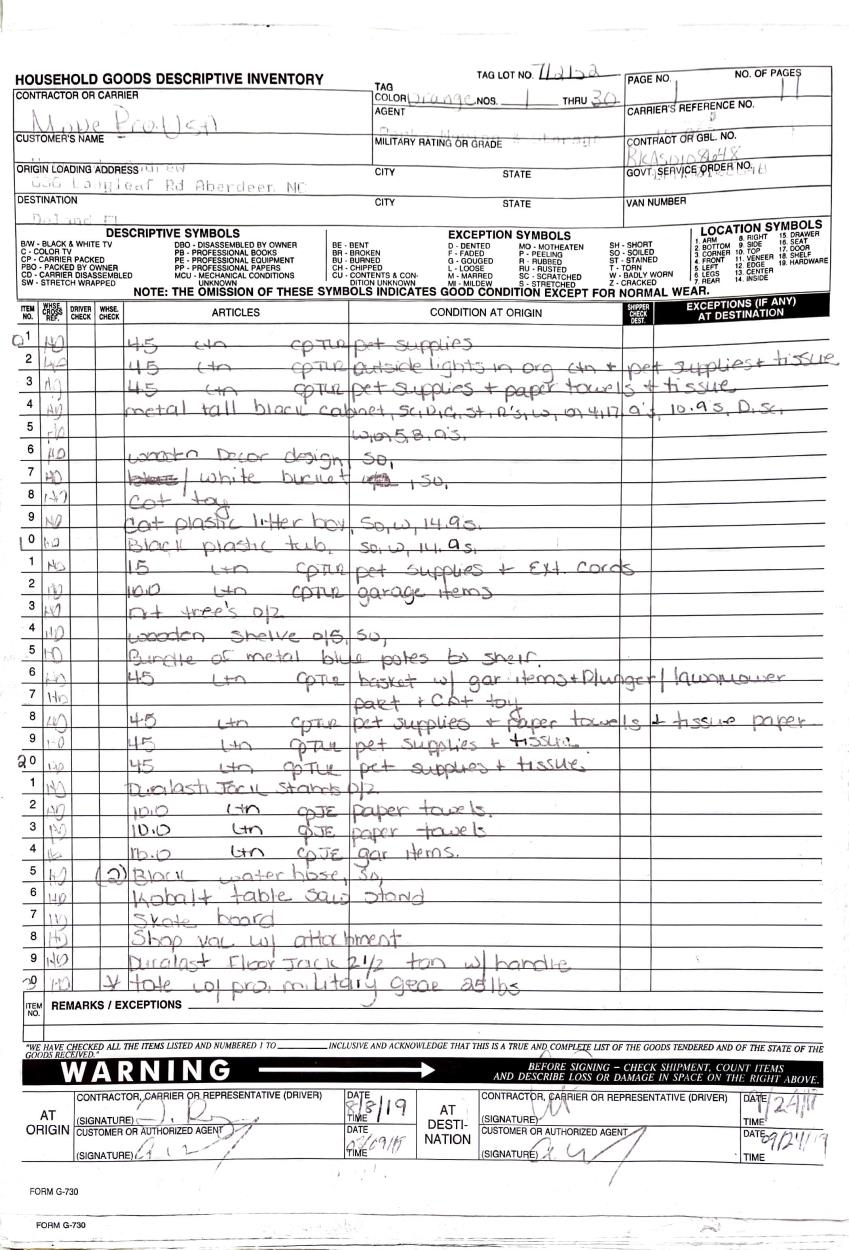 HOUSEHOLD GOODS DESCRIPTIVE INVENTORY
TAG LOT NO.
PAGE NO. 1 NO. OF PAGES
CONTRACTOR OR CARRIER
TAG COLOR Orange NOS. 1 THRU 30
Move ProUSA
AGENT
CARRIER'S REFERENCE NO.
CUSTOMER'S NAME
MILITARY RATING OR GRADE
CONTRACT OR GBL. NO.
ORIGIN LOADING ADDRESS CITY STATE
GOVT. SERVICE ORDER NO.
Longleaf Rd Aberdeen, NC
DESTINATION CITY STATE
VAN NUMBER
DESCRIPTIVE SYMBOLS
B/W - BLACK & WHITE TV
C - COLOR TV
CP - CARRIER PACKED
PBO - PACKED BY OWNER
CD - CARRIER DISASSEMBLED
SW - STRETCH WRAPPED
DBO - DISASSEMBLED BY OWNER
PB - PROFESSIONAL BOOKS
PE - PROFESSIONAL EQUIPMENT
PP - PROFESSIONAL PAPERS
MCU - MECHANICAL CONDITIONS
UNKNOWN
EXCEPTION SYMBOLS
BE - BENT
BR - BROKEN
BU - BURNED
CH - CHIPPED
CU - CONTENTS & CON-
DITION UNKNOWN
D - DENTED
F - FADED
G - GOUGED
L - LOOSE
M - MARRED
MI - MILDEW
MO - MOTHEATEN
P - PEELING
R - RUBBED
RU - RUSTED
SC - SCRATCHED
S - STRETCHED
SH - SHORT
SO - SOILED
ST - STAINED
T - TORN
W - BADLY WORN
Z - CRACKED
LOCATION SYMBOLS
1. ARM
2. BOTTOM
3. CORNER
4. FRONT
5. LEFT
6. LEGS
7. REAR
8. RIGHT
9. SIDE
10. TOP
11. VENEER
12. EDGE
13. CENTER
14. INSIDE
15. DRAWER
16. SEAT
17. DOOR
18. SHELF
19. HARDWARE
NOTE: THE OMISSION OF THESE SYMBOLS INDICATES GOOD CONDITION EXCEPT FOR NORMAL WEAR.
ITEM NO. WHSE. CROSS REF. DRIVER CHECK WHSE. CHECK ARTICLES CONDITION AT ORIGIN SHIPPER CHECK DEST. EXCEPTIONS (IF ANY) AT DESTINATION
01 4.5 ctn pet supplies
2 4.5 ctn outside lights in org ctn + pet supplies + tissue
3 4.5 ctn pet supplies + paper towels + tissue
4 metal tall black cabinet, sc, D, G, st, R's, w, on 4,17, 9's, 10.9s, D, sc,
5 w, on 5, 8, 9's.
6 wooden Decor design, so,
7 / white bucket , so,
8 Cat toy
9 Cat plastic litter box, so, w, 14.9s.
10 Black plastic tub, so, w, 14.9s.
1 1.5 ctn pet supplies + Ext. cords
2 10.0 ctn garage items
3 tree's 0/2
4 wooden shelve 0/5, so,
5 Bundle of metal blue poles to shelf.
6 4.5 ctn basket w/ gar items + Plunger / lawnmower
7 part + Cat toy
8 4.5 ctn pet supplies + paper towels + tissue paper
9 4.5 ctn pet supplies + tissue
20 4.5 ctn pet supplies + tissue
1 Duralast Jack stands 0/2
2 10.0 ctn cpJE paper towels.
3 10.0 ctn cpJE paper towels
4 ctn cpJE gar items.
5 (2) Black water hose, so,
6 Kobalt table saw stand
7 Skate board
8 Shop vac w/ attachment
9 Duralast Floor Jack 2 1/2 ton w/ handle
30 tote w/ pro, military gear 25 lbs
ITEM NO. REMARKS / EXCEPTIONS
"WE HAVE CHECKED ALL THE ITEMS LISTED AND NUMBERED 1 TO INCLUSIVE AND ACKNOWLEDGE THAT THIS IS A TRUE AND COMPLETE LIST OF THE GOODS TENDERED AND OF THE STATE OF THE
GOODS RECEIVED."
WARNING
BEFORE SIGNING – CHECK SHIPMENT, COUNT ITEMS
AND DESCRIBE LOSS OR DAMAGE IN SPACE ON THE RIGHT ABOVE.
AT ORIGIN
CONTRACTOR, CARRIER OR REPRESENTATIVE (DRIVER)
(SIGNATURE)
DATE 8/8/19
TIME
CUSTOMER OR AUTHORIZED AGENT
(SIGNATURE)
DATE
TIME
AT DESTI-NATION
CONTRACTOR, CARRIER OR REPRESENTATIVE (DRIVER)
(SIGNATURE)
DATE
TIME
CUSTOMER OR AUTHORIZED AGENT
(SIGNATURE)
DATE 09/24/19
TIME
FORM G-730
FORM G-730